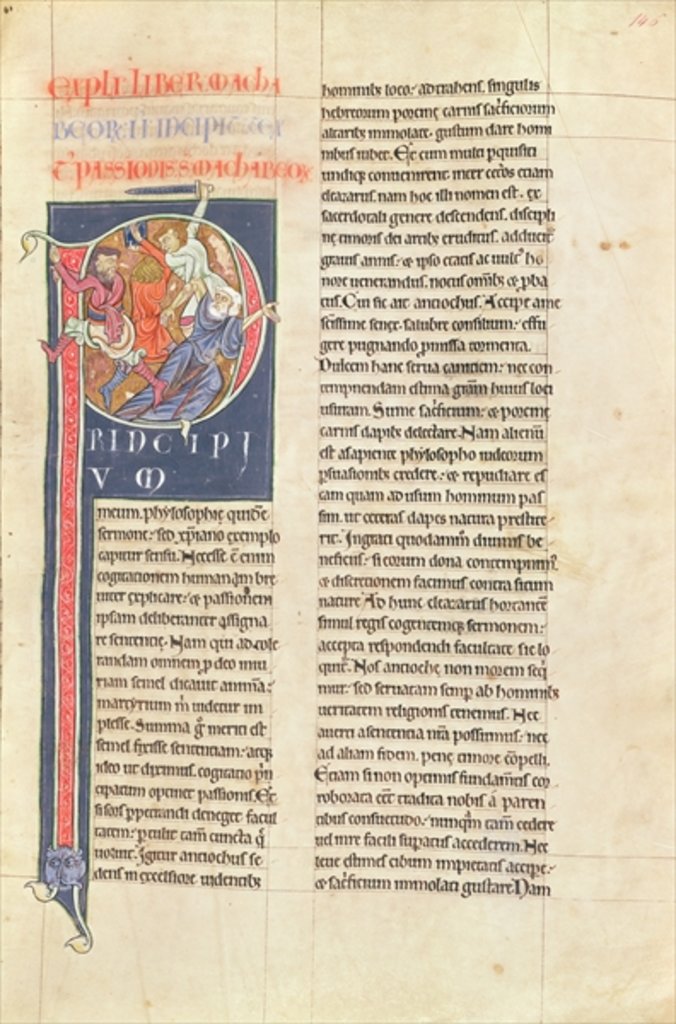 146
EXPLI LIBER MACHA
BEORV INCIPIT TEX
T PASSIONIS S MACHABEOR
PRINCIPI
VM
meum. phylosophic quide
sermone: sed xpiano exemplo
capitur sensu. Necesse e enim
cogitationem humanam bre
uiter explicare: & passionem
ipsam deliberanter assigna
re sententie. Nam qui ad tole
randam omnem p deo iniu
riam semel dicauit anima:
martyrium m uidetur im
plesse. Summa g meriti est
semel fixisse sententiam: atq
ideo ut diximus. cogitatio pin
cipatum optinet passionis. Et
si sors ppetiendi deneget facul
tatem: ptulit tam cuncta q
uoluit. Igitur antiochus se
dens in excelsiore uidentib
hominib loco: ad trahens singulis
hebreorum porcine carnis sacficiorum
altarib immolate. gustum dare homi
nibus iubet. Et cum multi pquisiti
undique conuenirent. inter ceteros etiam
eleazarus. nam hoc illi nomen est. ex
sacerdotali genere descendens. discipli
ne timoris dei artib eruditus. adducit
grauis annis: & ipso etatis ac uult ho
nore uenerandus. notus omib & pba
tus. Cui sic ait antiochus. Accipe ame
tissime senex. salubre consilium: effu
gere pugnando pmissa tormenta.
Dulcem hanc serua canitiem: nec con
tempnendam estima gram huius loci
usuram. Sume sacficium: & porcine
carnis dapib delectare. Nam alienu
est a sapiente phylosopho iudeorum
psuasionib credere: & repudiare es
cam quam ad usum hominum pas
sim. ut ceteras dapes natura prestite
rit. Ingrati quodammodo diuinis be
neficiis: si eorum dona contempnim.
& discretionem facimus contra situm
nature. Ad hunc eleazarus hortante
simul regis cogentemq sermonem:
accepta respondendi facultate sic lo
quit. Nos antioche non morem seq
mur: sed seruatam semp ab hominib
ueritatem religionis tenemus. Nec
auerti a sententia nra possumus: nec
ad aliam fidem. pene timore copelli.
Etiam si non optimis fundamtis cor
roborata eet tradita nobis a paren
tibus consuetudo: nunqm tam cedere
uel nire facili stupatus accederem. Nec
leue estimes cibum impietatis accipe:
& sacficium immolati gustare. Nam